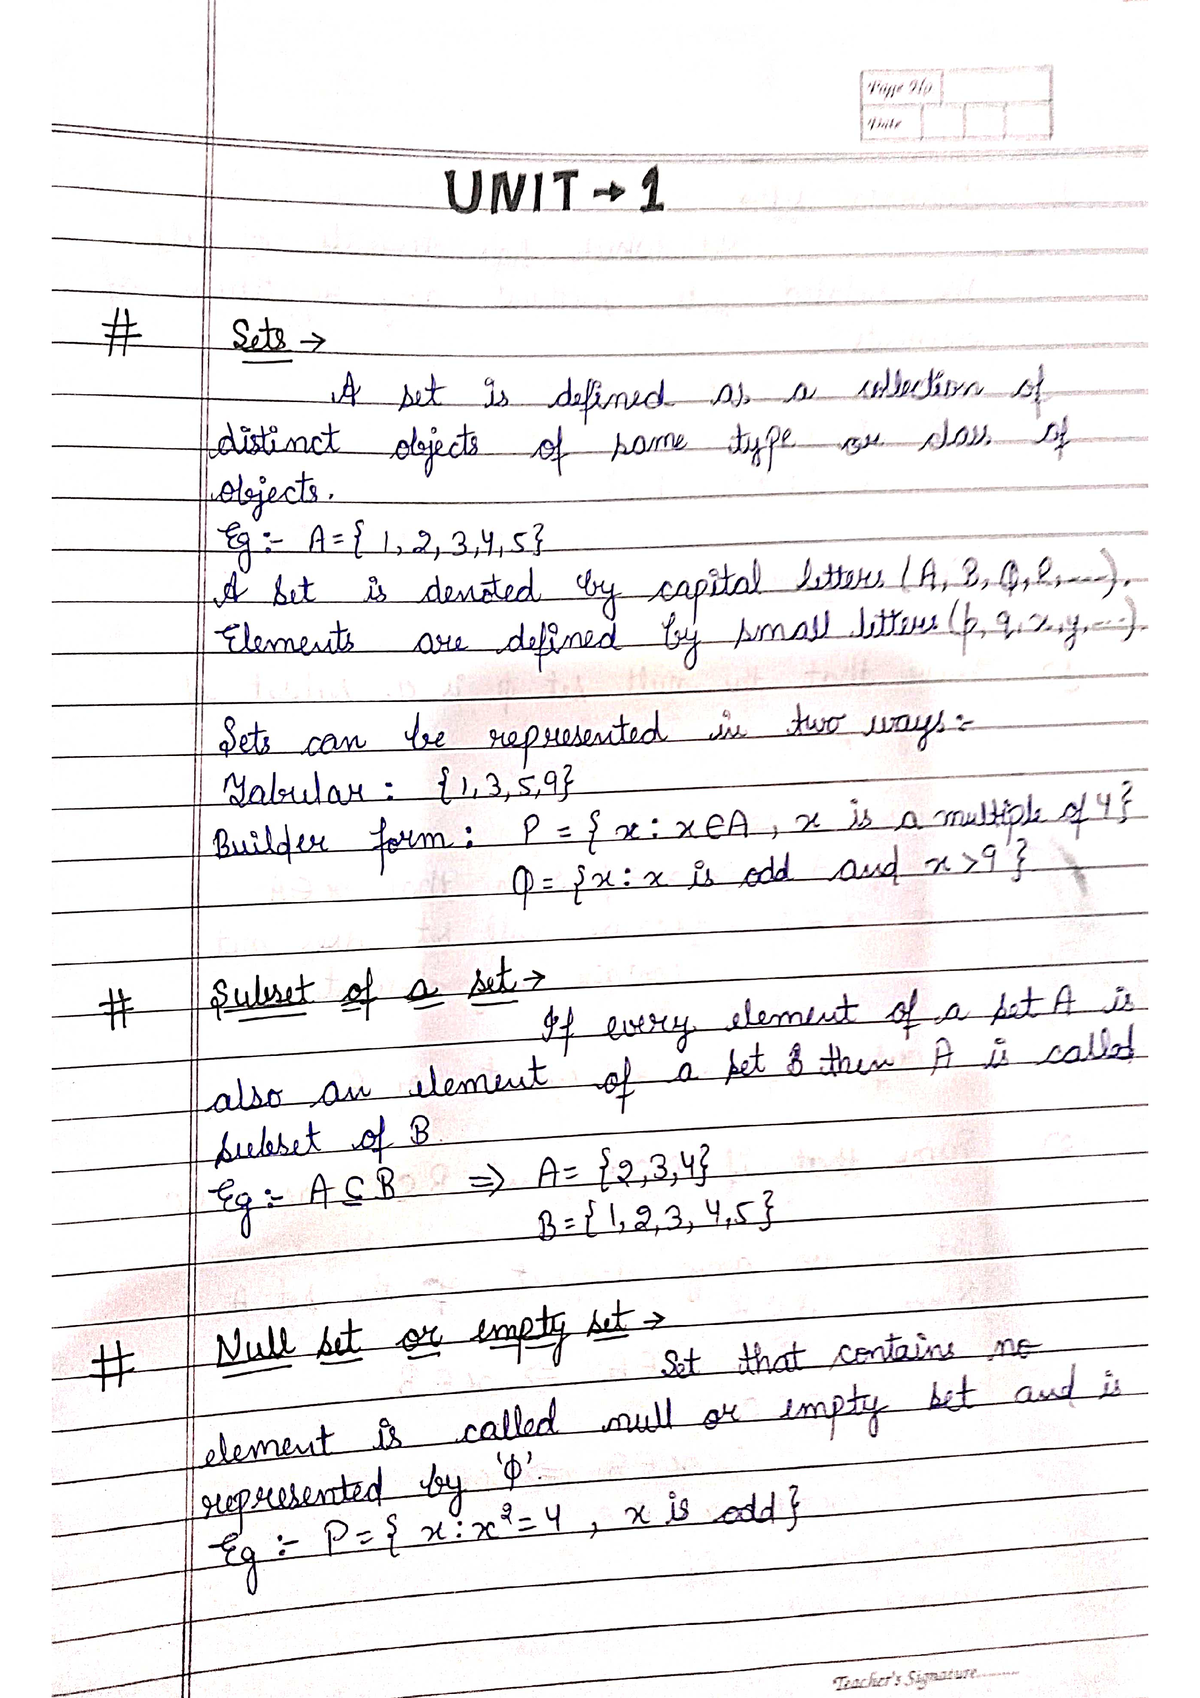 Page No
Date
UNIT → 1
# Sets →
A set is defined as a collection of
distinct objects of same type or class of
objects.
Eg :- A = { 1, 2, 3, 4, 5}
A set is denoted by capital letters (A, B, Q, R, ---).
Elements are defined by small letters (p, q, x, y, ---).
Sets can be represented in two ways :-
Tabular : {1, 3, 5, 9}
Builder form : P = { x : x ∈ A , x is a multiple of 4}
Q = {x : x is odd and x > 9}
# Subset of a set →
If every element of a set A is
also an element of a set B then A is called
subset of B.
Eg :- A ⊆ B ⇒ A = {2, 3, 4}
B = {1, 2, 3, 4, 5}
# Null set or empty set →
Set that contains no
element is called null or empty set and is
represented by 'ϕ'.
Eg :- P = { x : x² = 4 , x is odd}
Teacher's Signature..........